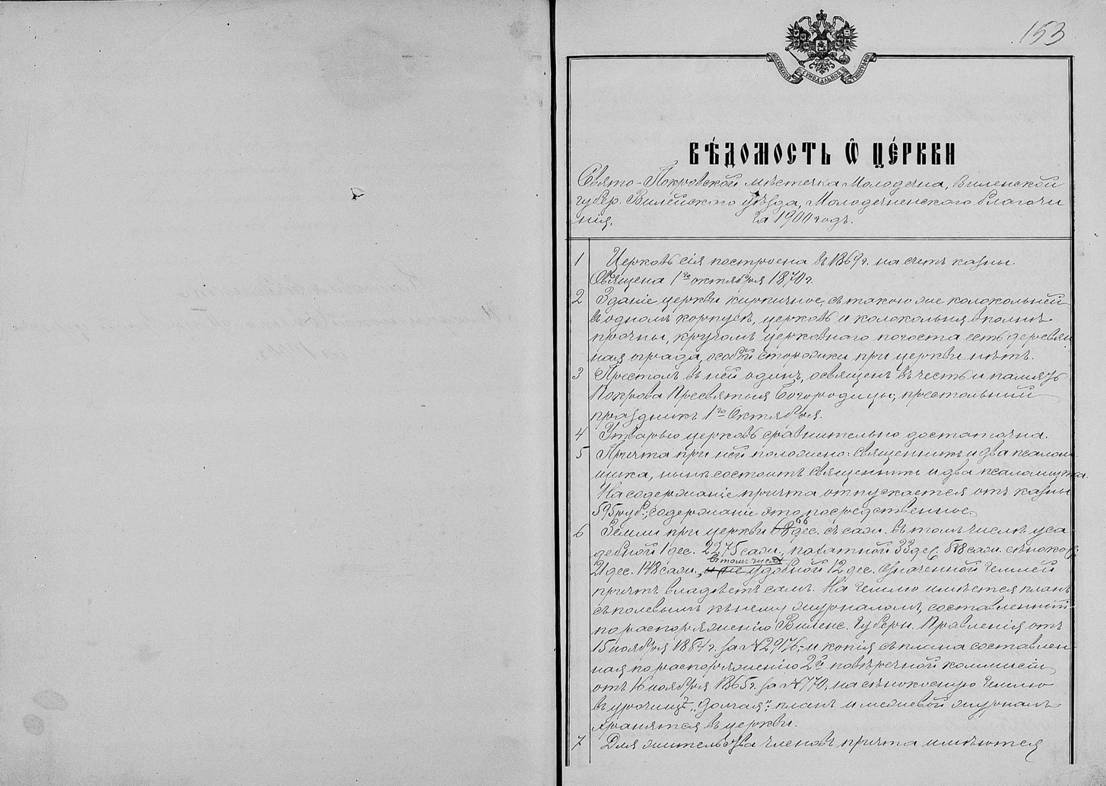 153
ВѢДОМОСТЬ Ѿ ЦЕРКВИ
Свято-Покровской мѣстечка Молодечна, Виленской
губер. Вилейскаго уѣзда, Молодечненскаго благочи
нія, за 1900 годъ.
1 Церковь сія построена въ 1869 г. на счетъ казны.
Освящена 1го октября 1870 г.
2 Зданіе церкви кирпичное, съ такою же колокольней
въ одномъ корпусѣ, церковь и колокольня вполнѣ
прочны, кругомъ церковнаго погоста есть деревян
ная ограда, особой сторожки при церкви нѣтъ.
3 Престолъ въ ней одинъ, освященъ въ честь и память
Покрова Пресвятыя Богородицы, престольный
праздникъ 1го Октября.
4 Утварью церковь сравнительно достаточна.
5 Причта при ней положено: священникъ и два псалом
щика, нынѣ состоитъ священникъ и два псаломщика.
На содержаніе причта отпускается отъ казны
595 руб.; содержаніе это посредственное.
6 Земли при церкви 66 дес. саж. въ томъ числѣ уса
дебной 1 дес. 2275 саж., пахатной 33 дес. 518 саж. сѣнокос.
21 дес. 148 саж., в томъ числѣ удобной 12 дес. Означенной землей
причтъ владѣетъ самъ. На землю имѣется планъ
съ полевымъ къ нему журналомъ, составленный
по распоряженію Виленс. Губерн. Правленія отъ
15 ноября 1854 г. за № 2976 и копія съ плана составлен
ная по распоряженію 2й повѣрочной коммисіи
отъ 16 ноября 1865 г. за № 770, на сѣнокосную землю
въ урочищѣ „Долгая“; планъ и межевой журналъ
хранятся въ церкви.
7 Для жительства членовъ причта имѣются